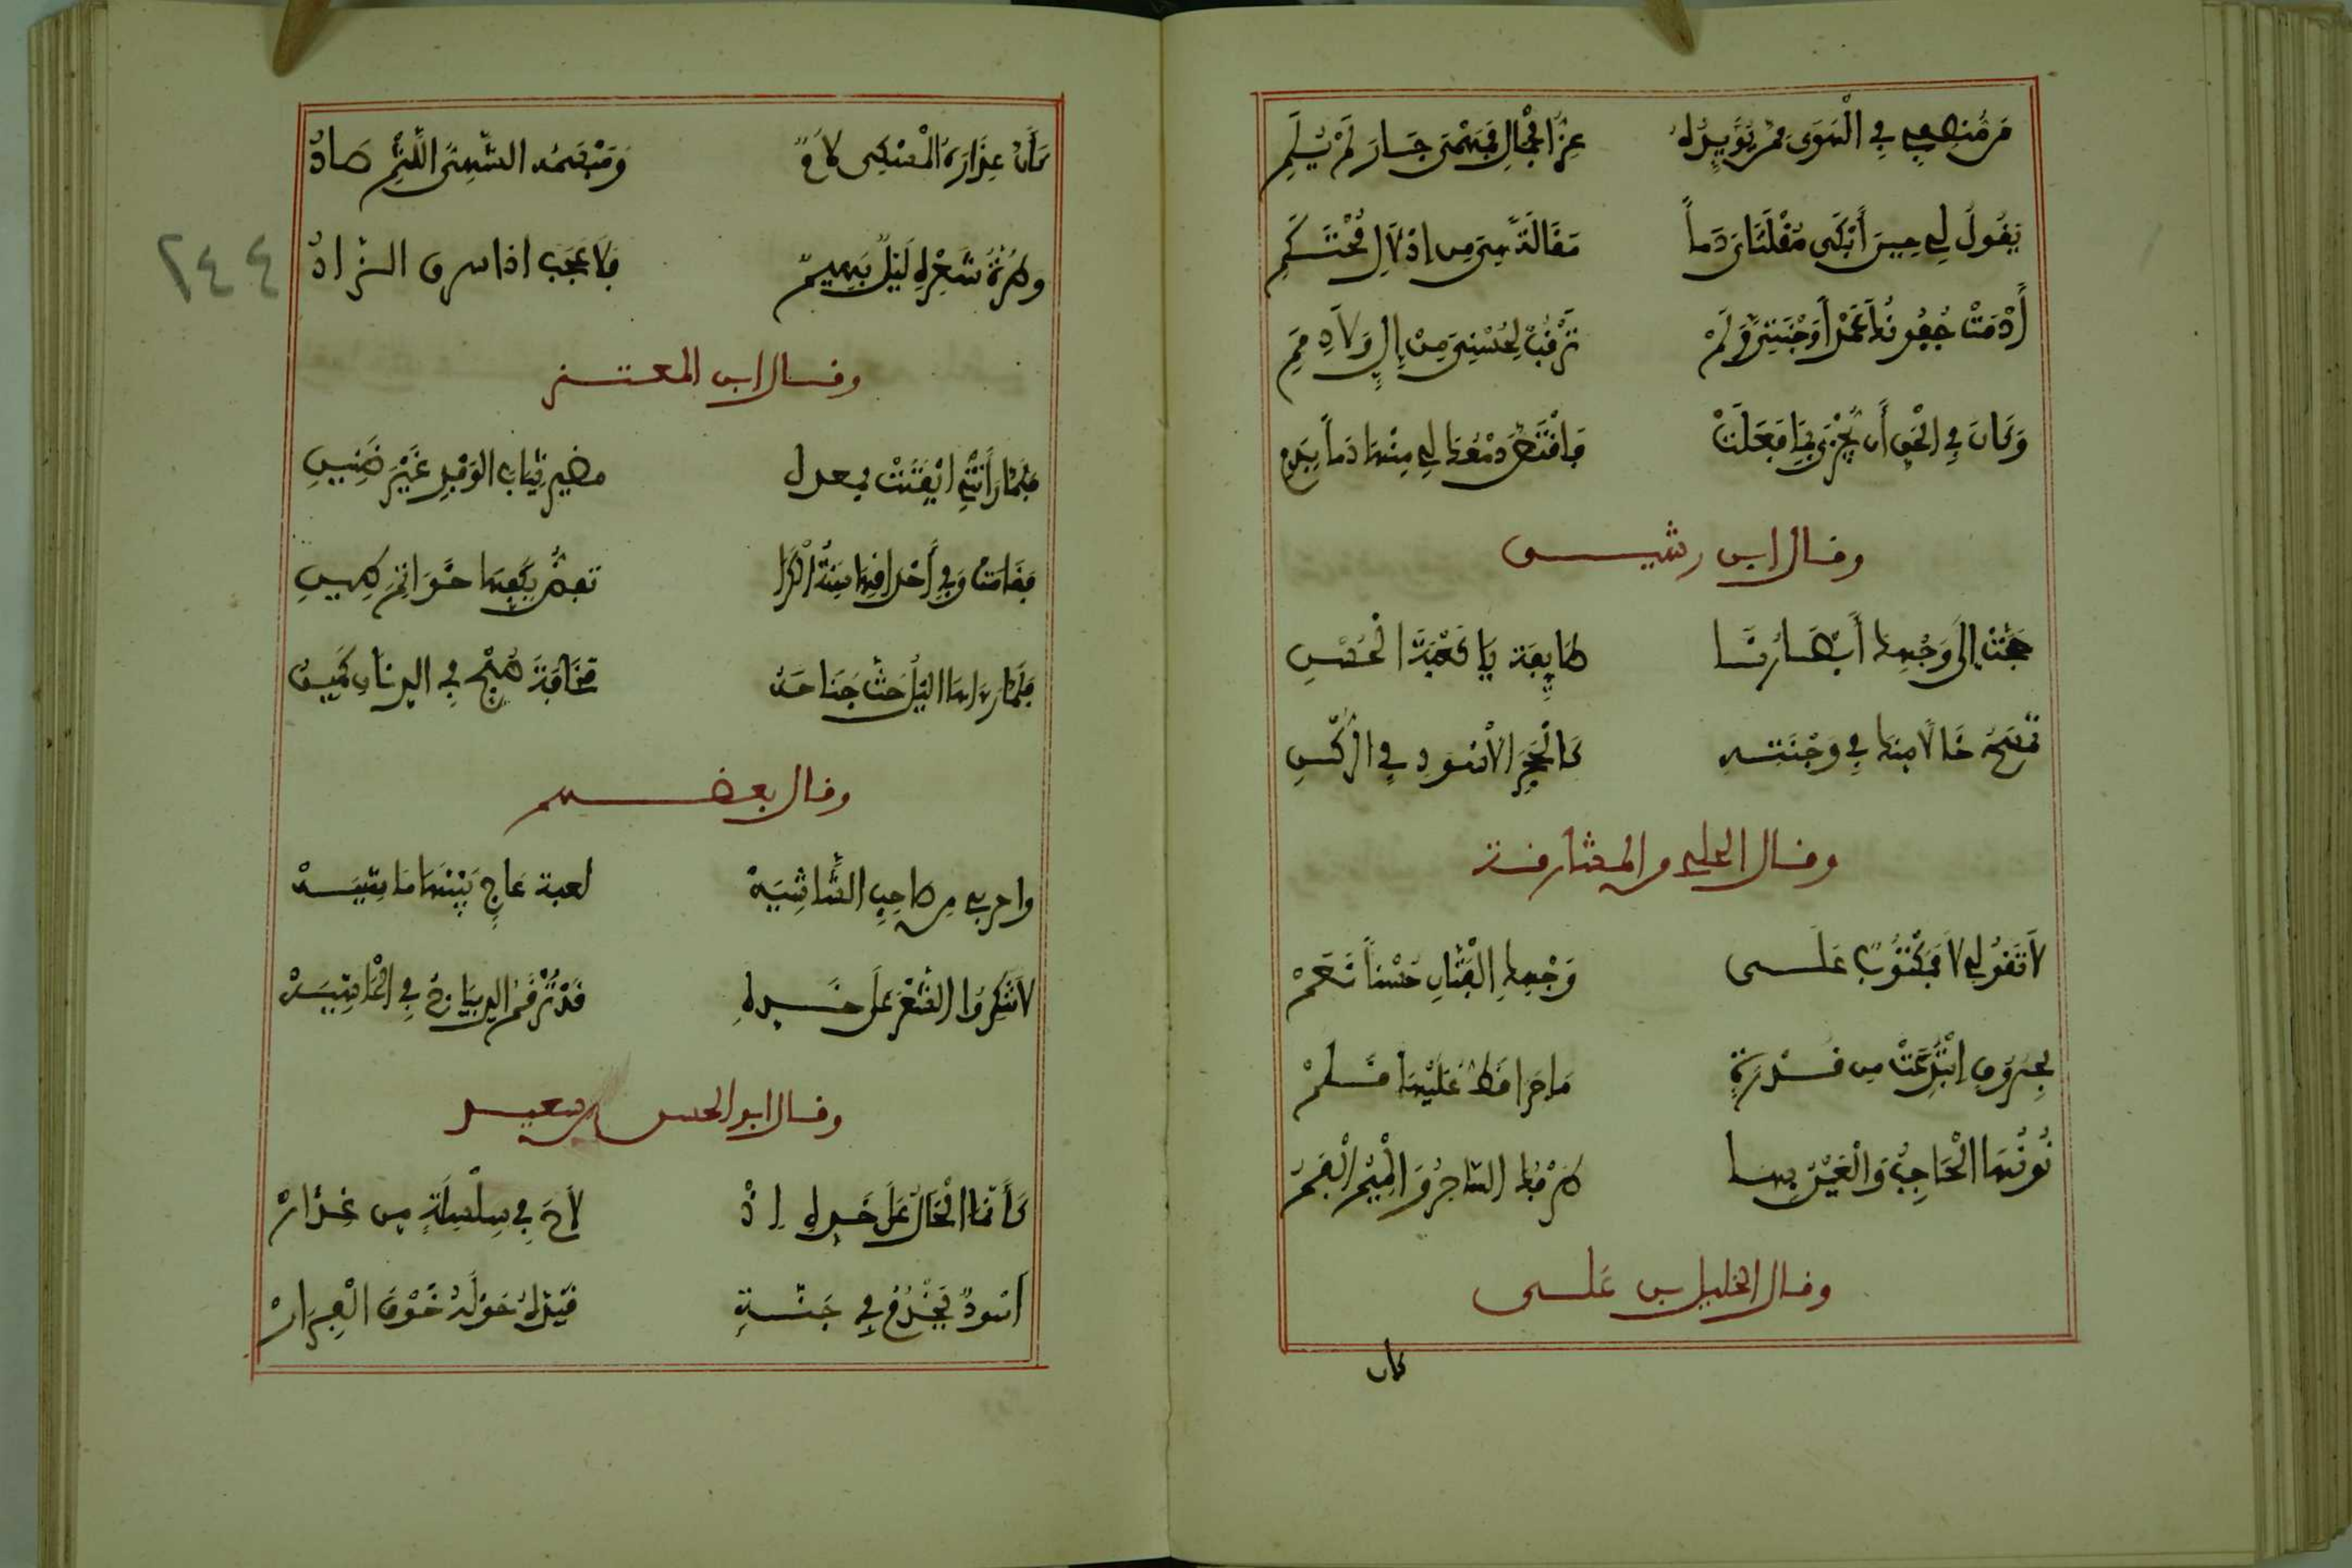 مَن مُنصِفي في الهَوَى ممن يُؤَيِّدُهُ عِزُّ الجمالِ فمَهْمَى جَارَ لَمْ يُلَمِ
يَقُولُ لي حِينَ أَبْكَى مُقْلَتَايَ دَماً مَقَالَةً مِن إدْلَالِ مُحْتَكِمِ
أَدْمَتْ جُفُونُكَ عَمْداً وَجْنَتِي وَلَمْ تَرْقُبْ لِحُسْنِيَ مِنْ إِلٍّ وَلَا ذِمَمِ
وَكَانَ في الحَقِّ أن تُجْزَى بِمَا فَعَلَتْ فَاقْتَصَّ دَمْعُكَ لي مِنْهَا دَماً بِدَمِ
وقال ابن رشيق
حَجَّتْ إلَى وَجْهِكَ أَبْصَارُنَا طَايِعَة يَا كَعْبَةَ الحُسْنِ
تمْسَحُ خَالاً مِنكَ في وَجْنَتِهِ كَالحَجَرِ الأسْوَدِ في الرُّكْنِ
وقال الحلي والمشارقة
لَا تَقُولي لَا فَمَكْتُوبٌ عَلَى وَجْهِكِ الفَتَّانِ حُسْناً نَعَمْ
بِحُرُوفٍ ابْتُدِعَتْ مِن قُدْرَةٍ مَا جَرَا قَطُّ عَلَيْهَا قَلَمْ
نُونُهَا الحَاجِبُ وَالعَيْنُ بِهَا طَرْفُكِ السَّاحِرُ وَالمِيمُ الفَمْ
وقال الخليل بن عَلى
كأن
كَأَنَّ عِذَارَهُ المسْكِي لَامٌ وَمَبْسَمُهُ الشَّهِيَّ اللَّثْمِ صَادُ
وطُرَّةُ شَعْرِهِ لَيْلٌ بَهِيمٌ فَلَا عَجَبَ اذا سرق الرُّقادُ
٢٤٤
وقال ابن المعتز
فَلَمَّا رَأَتْنِي ايْقَنَتْ بمعدل مضير ثِيَابِ الوَفْرِ غَيْرَ ضَنِينِ
فقَامَتْ وَفي أَحْدَاقِهَا سِنَةُ الكَرَا تعُضُّ بِكَفِّهَا خَوَاتِمَ طِينِ
فَلَمَّا رءاهَا اليْلُ حَثَّ جَنَاحَهُ مَخَافَةَ صُبْحٍ في الدِّنَانِ كَمِينِ
وقال بعضهم
واحربي مِن صَاحِبِ الشَّاشِيَهْ لعبة عَاجٍ بَيْنَهَا مَاشِيَهْ
لَا تُنكِرُوا الشَّعْرَ عَلَى خَدِّهِ قَدْ تُرْقَمُ الديبَاجُ في الحَاشِيَهْ
وقال ابو الحسن بن سعيد
كَأَنَّمَا الخَالُ عَلَى خَدِّهِ إذْ لَاحَ في سِلْسِلَةٍ مِن عِذَارْ
اسْودٌ يَخْدُمُ في جَنَّةٍ قَيَّدَهُ مَوْلَاهُ خَوْفَ الفِرَارْ